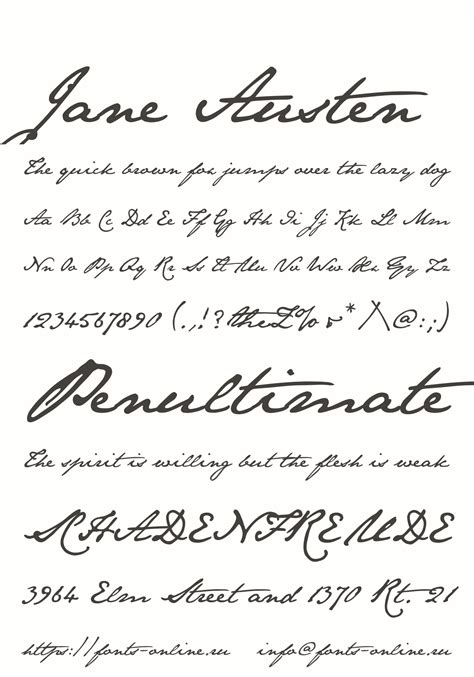 Jane Austen
The quick brown fox jumps over the lazy dog
Aa Bb Cc Dd Ee Ff Gg Hh Ii Jj Kk Ll Mm
Nn Oo Pp Qq Rr Ss Tt Uu Vv Ww Xx Yy Zz
1234567890 (.,!? the £ % * / \ @ : ; )
Penultimate
The spirit is willing but the flesh is weak
SCHADENFREUDE
3964 Elm Street and 1370 Rt. 21
https://fonts-online.ru info@fonts-online.ru